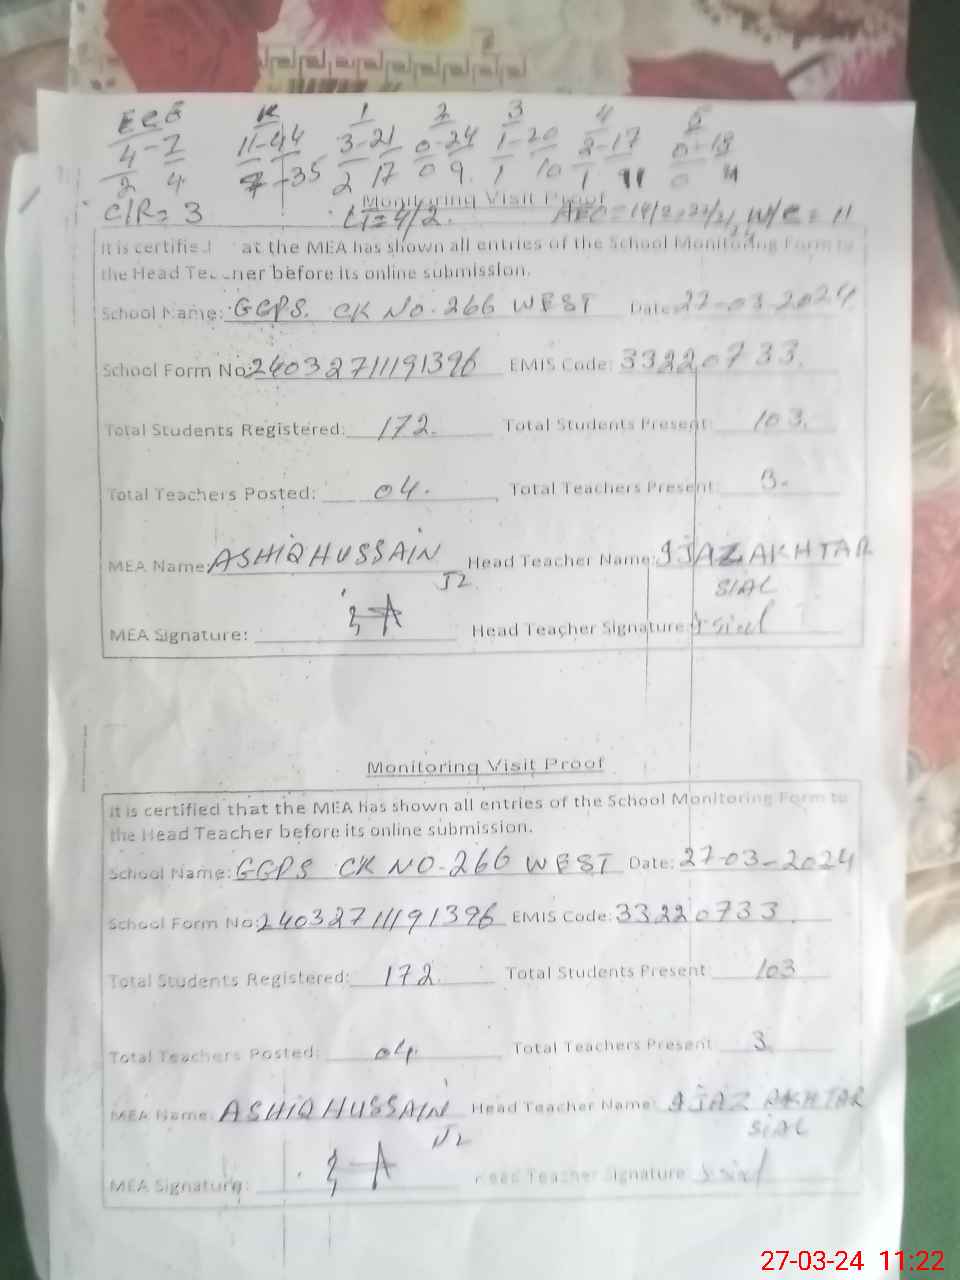 ECE K 1 2 3 4 5
4-7 11-44 3-21 0-24 1-20 2-17 0-13
2 4 7-35 2 17 0 9 1 10 1 11 0
C/R= 3 Monitoring Visit Proof W/C = 11
It is certified at the MEA has shown all entries of the School Monitoring Form to
the Head Teacher before its online submission.
School Name: GGPS. CK NO. 266 WEST Date: 27-03-2024
School Form No: 24032711191396 EMIS Code: 33220733.
Total Students Registered: 172. Total Students Present: 103.
Total Teachers Posted: 04. Total Teachers Present: 3.
MEA Name: ASHIQ HUSSAIN Head Teacher Name: IJAZ AKHTAR
J2 SIAL
MEA Signature: Head Teacher Signature: sial
Monitoring Visit Proof
It is certified that the MEA has shown all entries of the School Monitoring Form to
the Head Teacher before its online submission.
School Name: GGPS CK NO. 266 WEST Date: 27-03-2024
School Form No: 24032711191396 EMIS Code: 33220733.
Total Students Registered: 172. Total Students Present: 103
Total Teachers Posted: 04. Total Teachers Present 3.
MEA Name: ASHIQ HUSSAIN Head Teacher Name: IJAZ AKHTAR
J2 SIAL
MEA Signature: Head Teacher Signature sial
27-03-24 11:22